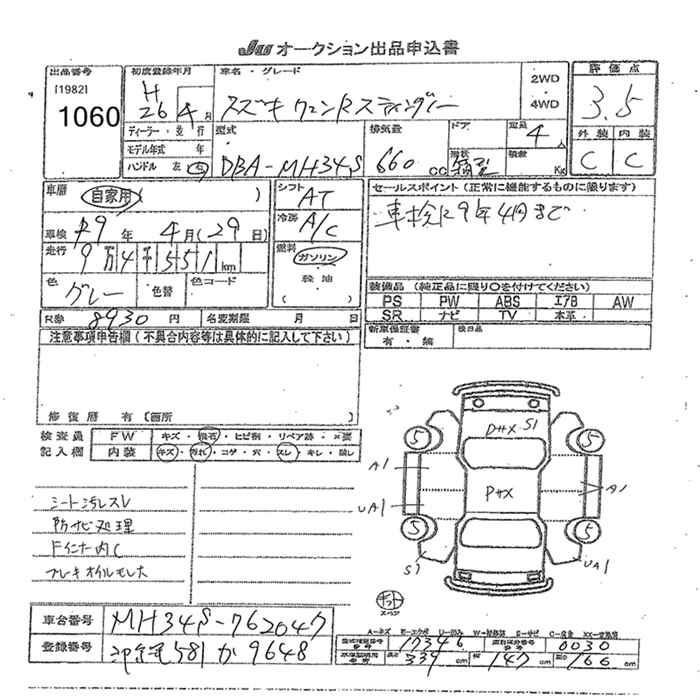 JU オークション出品申込書
出品番号
[1982]
1060
初度登録年月
H 26年 4月
車名・グレード
スズキ ワゴンRスティングレー
2WD
4WD
評価点
3.5
外装 内装
C C
ディーラー・並行
モデル年式 年
ハンドル 左 右
型式
DBA-MH34S
排気量
660 cc
ドア
形状
定員
4 人
積載
Kg
車歴 自家用 ( )
車検 R9年 4月(29日)
走行 9万4千551km
色 グレー 色替
色コード
シフト AT
冷房 A/C
燃料 ガソリン
軽油
セールスポイント(正常に機能するものに限ります)
車検R9年4月まで
装備品(純正品に限り○を付けてください)
PS PW ABS エアB AW
SR ナビ TV 本革
新車保証書
有・無
検印品
R券 8930 円 名変期限 月 日
注意事項申告欄(不具合内容等は具体的に記入して下さい)
修復歴 有(箇所
検査員
記入欄
FW キズ・飛石・ヒビ割・リペア跡・
内装 キズ・汚れ・コゲ・穴・スレ・キレ・
シート汚レスレ
防サビ処理
Fインナー内C
ブレーキオイルモレ大
Dキズ S1
Pキズ
5 5
A1 A1
UA1
5 5
S1 UA1
スペア
車台番号 MH34S-762047
登録番号 581 か 9648
A-キズ U-凹み S-サビ
17346
0030
長さ 339 cm 幅 147 cm 高さ 166 cm